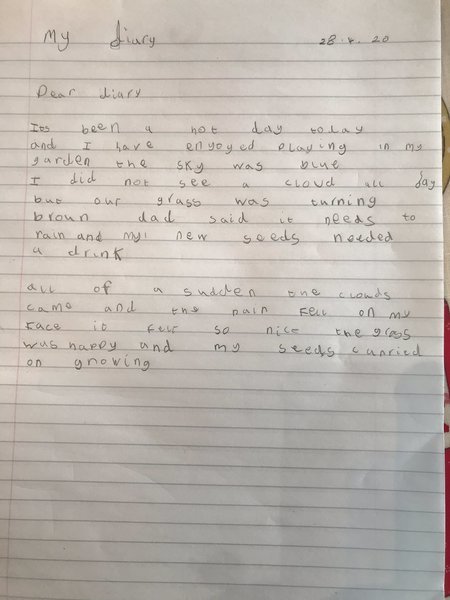 My diary
28.4.20
Dear diary
Its been a hot day today
and I have enyoyed playing in my
garden the sky was blue
I did not see a cloud all day
but our grass was turning
broun dad said it needs to
rain and my new seeds needed
a drink
all of a sudden the clouds
came and the rain fell on my
face it felt so nice the grass
was happy and my seeds carried
on growing